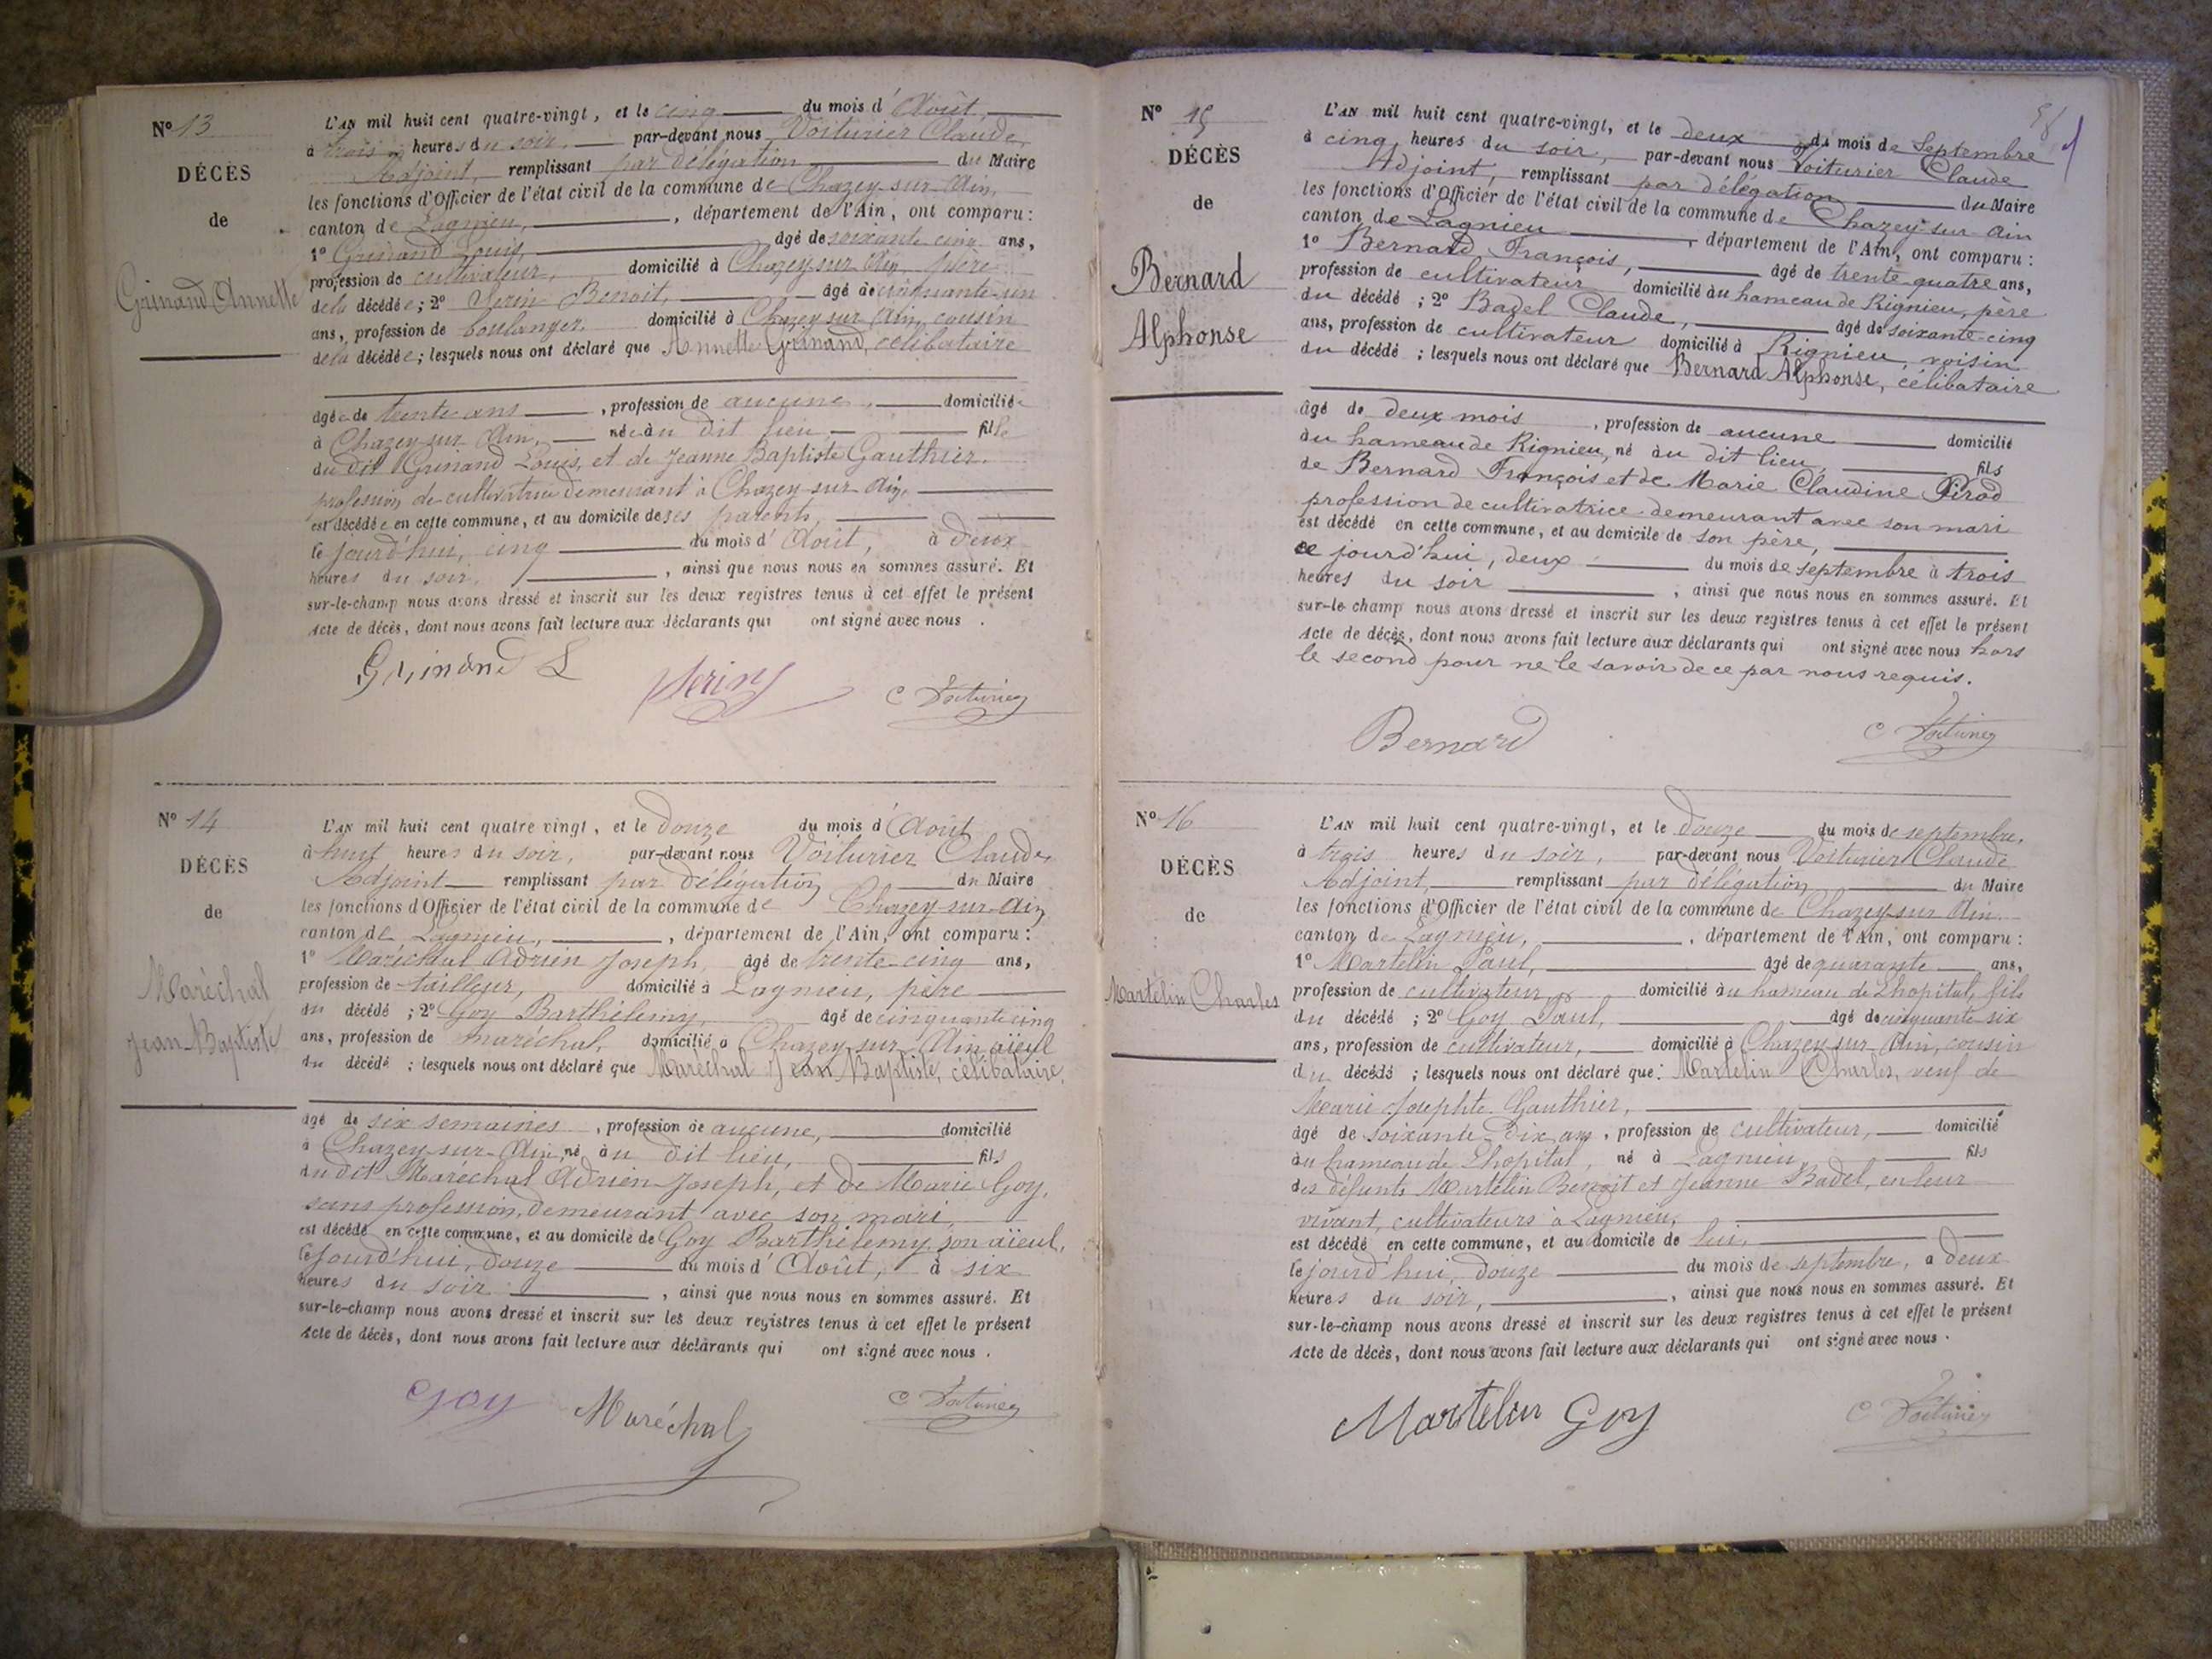 Nº 13
DÉCÈS
de
Grinand Annette
L'AN mil huit cent quatre-vingt, et le cinq du mois d'Août,
à trois heures du soir, par-devant nous Voiturier Claude,
Adjoint, remplissant par délégation du Maire
les fonctions d'Officier de l'état civil de la commune de Chazey-sur-Ain,
canton de Lagnieu, département de l'Ain, ont comparu :
1º Grinand Louis, âgé de soixante cinq ans,
profession de cultivateur, domicilié à Chazey-sur-Ain, père
de la décédée ; 2º Serin Benoit, âgé de cinquante-un
ans, profession de boulanger, domicilié à Chazey sur Ain, cousin
de la décédée ; lesquels nous ont déclaré que Annette Grinand, célibataire
âgée de trente ans, profession de aucune, domiciliée
à Chazey-sur-Ain, née au dit lieu, fille
du dit Grinand Louis, et de Jeanne Baptiste Gauthier,
profession de cultivatrice demeurant à Chazey-sur-Ain,
est décédée en cette commune, et au domicile de ses parents,
ce jourd'hui, cinq du mois d'Août, à deux
heures du soir, ainsi que nous nous en sommes assuré. Et
sur-le-champ nous avons dressé et inscrit sur les deux registres tenus à cet effet le présent
Acte de décès, dont nous avons fait lecture aux déclarants qui ont signé avec nous.
Grinand L Serin C Voiturier
Nº 14
DÉCÈS
de
Maréchal
Jean-Baptiste
L'AN mil huit cent quatre vingt, et le douze du mois d'Août
à huit heures du soir, par-devant nous Voiturier Claude,
Adjoint remplissant par délégation du Maire
les fonctions d'Officier de l'état civil de la commune de Chazey-sur-Ain
canton de Lagnieu, département de l'Ain, ont comparu :
1º Maréchal Adrien Joseph, âgé de trente-cinq ans,
profession de tailleur, domicilié à Lagnieu, père
du décédé ; 2º Goy Barthélemy, âgé de cinquante cinq
ans, profession de maréchal, domicilié à Chazey-sur-Ain aïeul
du décédé ; lesquels nous ont déclaré que Maréchal Jean Baptiste, célibataire,
âgé de six semaines, profession de aucune, domicilié
à Chazey-sur-Ain, né au dit lieu, fils
du dit Maréchal Adrien Joseph, et de Marie Goy,
sans profession, demeurant avec son mari
est décédé en cette commune, et au domicile de Goy Barthélemy, son aïeul,
ce jourd'hui, douze du mois d'Août, à six
heures du soir, ainsi que nous nous en sommes assuré. Et
sur-le-champ nous avons dressé et inscrit sur les deux registres tenus à cet effet le présent
Acte de décès, dont nous avons fait lecture aux déclarants qui ont signé avec nous.
Goy Maréchal C Voiturier
Nº 15
DÉCÈS
de
Bernard
Alphonse
L'AN mil huit cent quatre-vingt, et le deux du mois de Septembre
à cinq heures du soir, par-devant nous Voiturier Claude
Adjoint, remplissant par délégation du Maire
les fonctions d'Officier de l'état civil de la commune de Chazey-sur-Ain
canton de Lagnieu, département de l'Ain, ont comparu :
1º Bernard François, âgé de trente-quatre ans,
profession de cultivateur domicilié au hameau de Rignieu, père
du décédé ; 2º Badel Claude, âgé de soixante-cinq
ans, profession de cultivateur domicilié à Rignieu, voisin
du décédé ; lesquels nous ont déclaré que Bernard Alphonse, célibataire
âgé de deux mois, profession de aucune domicilié
au hameau de Rignieu, né au dit lieu, fils
de Bernard François et de Marie Claudine Pirod
profession de cultivatrice demeurant avec son mari
est décédé en cette commune, et au domicile de son père,
ce jourd'hui, deux du mois de septembre à trois
heures du soir, ainsi que nous nous en sommes assuré. Et
sur-le-champ nous avons dressé et inscrit sur les deux registres tenus à cet effet le présent
Acte de décès, dont nous avons fait lecture aux déclarants qui ont signé avec nous hors
le second pour ne le savoir de ce par nous requis.
Bernard C Voiturier
Nº 16
DÉCÈS
de
Martelin Charles
L'AN mil huit cent quatre-vingt, et le douze du mois de septembre,
à trois heures du soir, par-devant nous Voiturier Claude
Adjoint, remplissant par délégation du Maire
les fonctions d'Officier de l'état civil de la commune de Chazey-sur-Ain
canton de Lagnieu, département de l'Ain, ont comparu :
1º Martelin Paul, âgé de quarante ans,
profession de cultivateur, domicilié au hameau de Lhopital, fils
du décédé ; 2º Goy Paul, âgé de cinquante-six
ans, profession de cultivateur, domicilié à Chazey-sur-Ain, cousin
du décédé ; lesquels nous ont déclaré que : Martelin Charles, veuf de
Marie Josephte Gauthier,
âgé de soixante-dix ans, profession de cultivateur, domicilié
au hameau de Lhopital, né à Lagnieu, fils
des défunts Martelin Benoit et Jeanne Badel, en leur
vivant, cultivateurs à Lagnieu,
est décédé en cette commune, et au domicile de lui,
ce jourd'hui, douze du mois de septembre, à deux
heures du soir, ainsi que nous nous en sommes assuré. Et
sur-le-champ nous avons dressé et inscrit sur les deux registres tenus à cet effet le présent
Acte de décès, dont nous avons fait lecture aux déclarants qui ont signé avec nous.
Martelin Goy C Voiturier